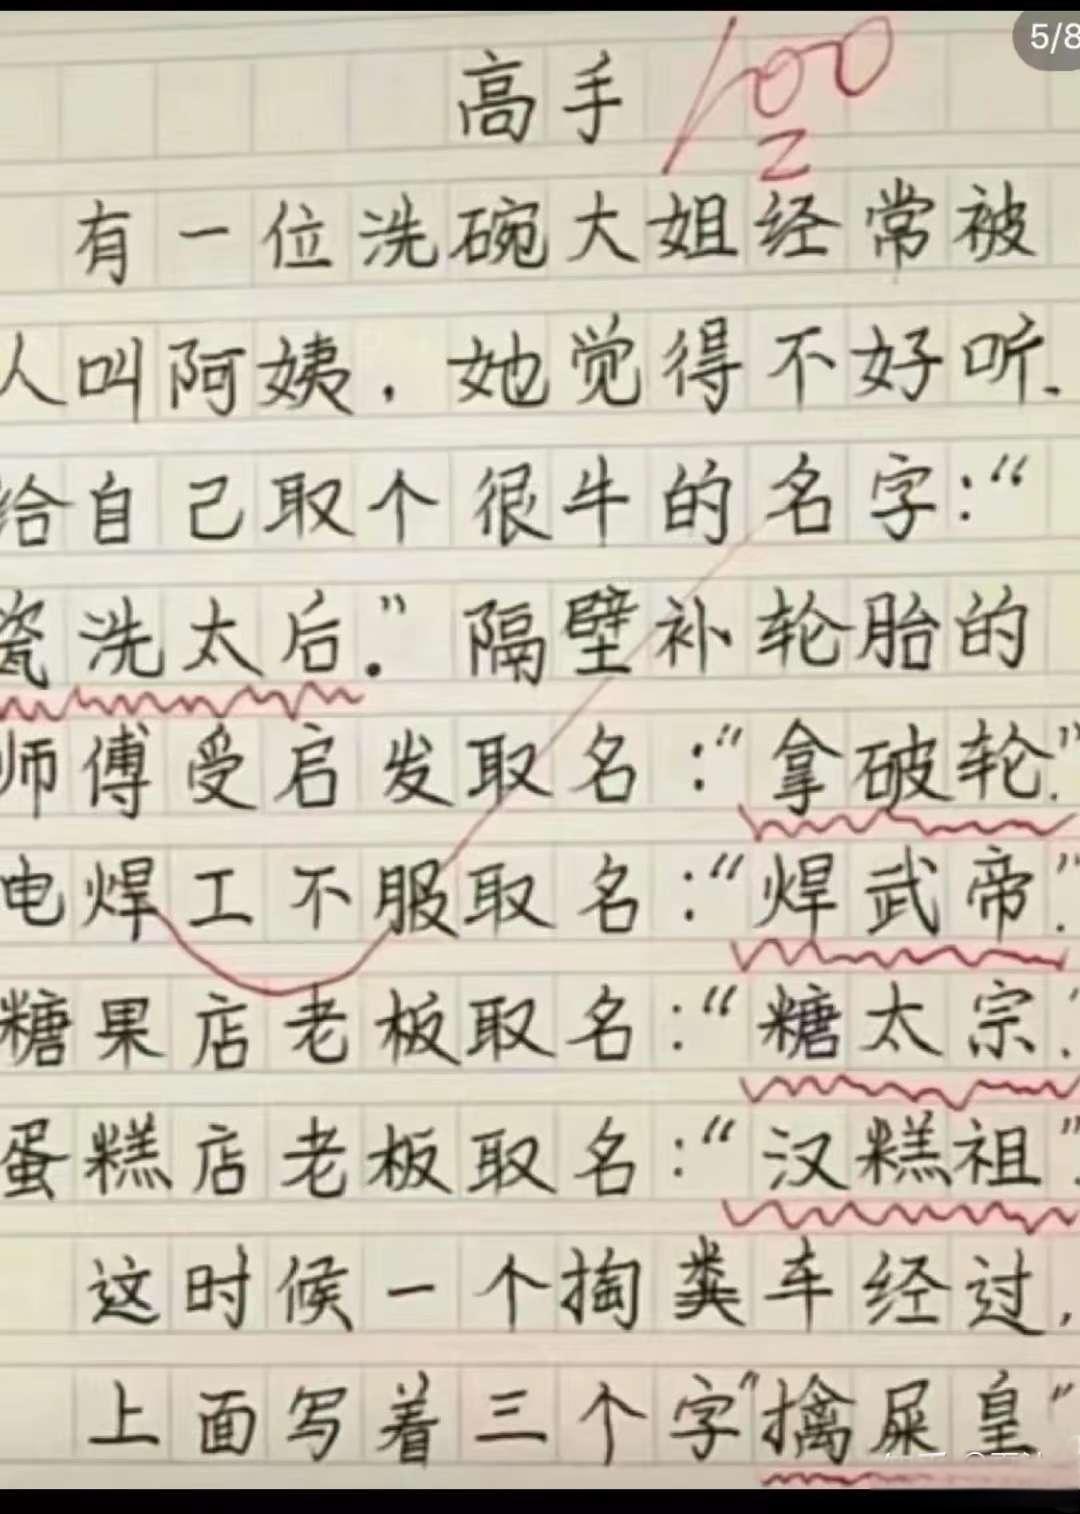 5/8
高手
100
有一位洗碗大姐经常被
人叫阿姨，她觉得不好听.
给自己取个很牛的名字:“
瓷洗太后.”隔壁补轮胎的
师傅受启发取名:“拿破轮.”
电焊工不服取名:“焊武帝.”
糖果店老板取名:“糖太宗.”
蛋糕店老板取名:“汉糕祖”.
这时候一个掏粪车经过,
上面写着三个字“擒屎皇”